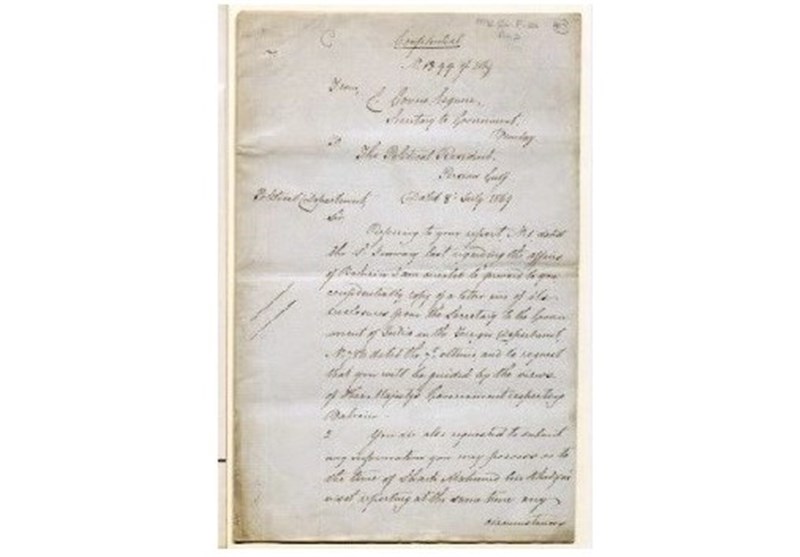 Confidential
No. 1399 of 1869
From,
C. Gonne Esquire,
Secretary to Government,
Bombay
To
The Political Resident,
Persian Gulf
Political Department, Dated 8 July 1869
Sir
Referring to your report No. 1 dated
the 1st January last regarding the affairs
of Bahrein I am directed to forward to you
confidentially copy of a letter and of its
enclosures from the Secretary to the Govern
ment of India in the Foreign Department,
dated the 7th ultimo, and to request
that you will be guided by the views
of Her Majesty's Government respecting
Bahrein.
2. You are also requested to submit
any information you may possess as to
the time of Shaik Mahomed bin
reporting at the same time any
circumstances